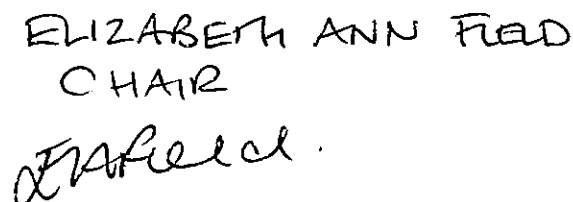 ELIZABETH ANN FIELD
CHAIR
EAField.